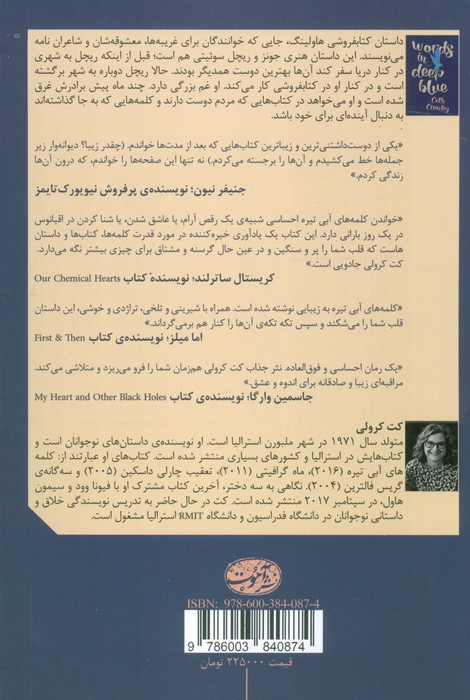 words
in
deep
blue
Cath
Crowley
داستان کتابفروشی هاولینگ، جایی که خوانندگان برای غریبه‌ها، معشوقه‌شان و شاعران نامه
می‌نویسند. این داستان هنری جونز و ریچل سوئیتی هم است؛ قبل از اینکه ریچل به شهری
در کنار دریا سفر کند آن‌ها بهترین دوست همدیگر بودند. حالا ریچل دوباره به شهر برگشته
است و در کنار او در کتابفروشی کار می‌کند. او غم بزرگی دارد. چند ماه پیش برادرش غرق
شده است و او می‌خواهد در کتاب‌هایی که مردم دوست دارند و کلمه‌هایی که به جا گذاشته‌اند
به دنبال آینده‌ای برای خود باشد.
«یکی از دوست‌داشتنی‌ترین و زیباترین کتاب‌هایی که بعد از مدت‌ها خواندم. (چقدر زیبا؟ دیوانه‌وار زیر
جمله‌ها خط می‌کشیدم و آن‌ها را برجسته می‌کردم.) نه تنها این صفحه‌ها را خواندم، که درون آن‌ها
زندگی کردم.»
جنیفر نیون؛ نویسنده‌ی پرفروش نیویورک‌تایمز
«خواندن کلمه‌های آبی تیره احساسی شبیه‌ی یک رقص آرام، یا عاشق شدن، یا شنا کردن در اقیانوس
در یک روز بارانی دارد. این کتاب یک یادآوری خیره‌کننده در مورد قدرت کلمه‌ها، کتاب‌ها و داستان
هاست که قلب شما را پر و سنگین و در عین حال گرسنه و مشتاق برای چیزی بیشتر نگه می‌دارد.
کت کرولی جادویی است.»
کریستال ساترلند؛ نویسنده‌ کتاب Our Chemical Hearts
«کلمه‌های آبی تیره به زیبایی نوشته شده است. همراه با شیرینی و تلخی، تراژدی و خوشی، این داستان
قلب شما را می‌شکند و سپس تکه تکه‌ی آن‌ها را کنار هم برمی‌گرداند.»
اما میلز؛ نویسنده‌ی کتاب First & Then
«یک رمان احساسی و فوق‌العاده. نثر جذاب کت کرولی همزمان شما را فرو می‌ریزد و متلاشی می‌کند.
مراقبه‌ای زیبا و صادقانه برای اندوه و عشق.»
جاسمین وارگا؛ نویسنده‌ی کتاب My Heart and Other Black Holes
کت کرولی
متولد سال ۱۹۷۱ در شهر ملبورن استرالیا است. او نویسنده‌ی داستان‌های نوجوانان است و
کتاب‌هایش در استرالیا و کشورهای بسیاری منتشر شده است. کتاب‌های او عبارتند از: کلمه
های آبی تیره (۲۰۱۶)، ماه گرافیتی (۲۰۱۱)، تعقیب چارلی داسکین (۲۰۰۵) و سه‌گانه‌ی
گریس فالترین (۲۰۰۴). نگاهی به سه دختر، آخرین کتاب مشترک او با فیونا وود و سیمون
هاول، در سپتامبر ۲۰۱۷ منتشر شده است. کت در حال حاضر به تدریس نویسندگی خلاق و
داستانی نوجوانان در دانشگاه فدراسیون و دانشگاه RMIT استرالیا مشغول است.
ISBN: 978-600-384-087-4
9 786003 840874
قیمت ۲۲۵۰۰۰ تومان